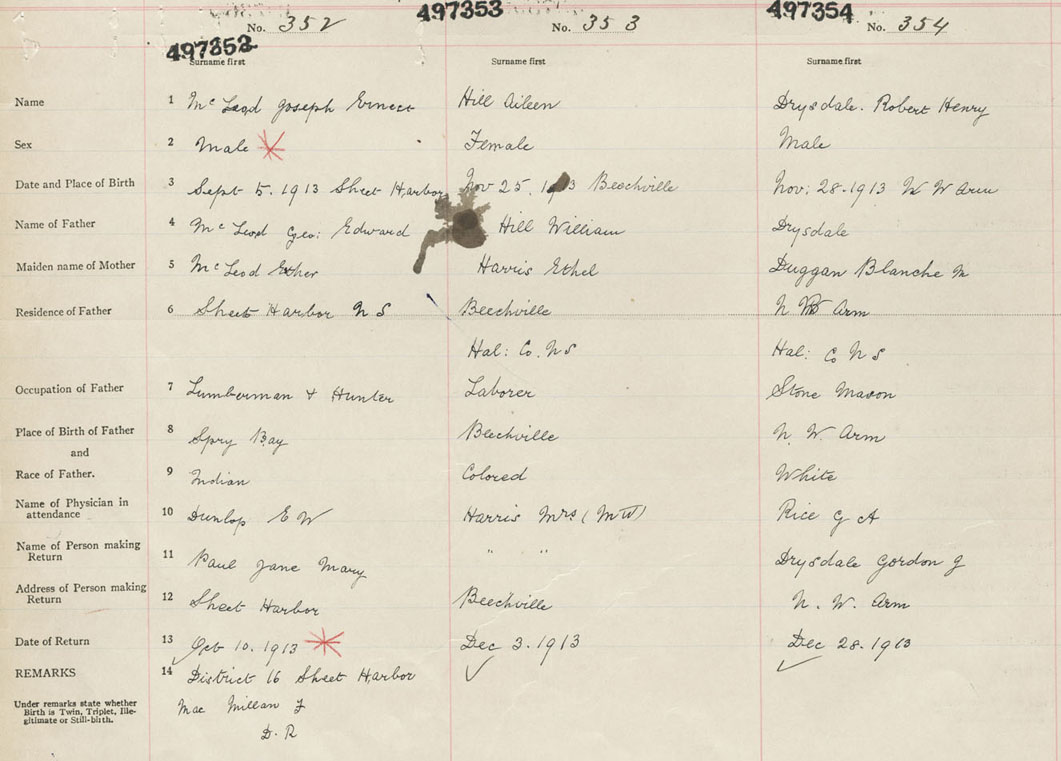 497352 497353 497354
No. 352 No. 353 No. 354
Surname first Surname first Surname first
Name 1 Mc Leod Joseph Ernest Hill Aileen Drysdale. Robert Henry
Sex 2 Male Female Male
Date and Place of Birth 3 Sept 5. 1913 Sheet Harbor Nov 25. 1913 Beechville Nov: 28-1913 N W Arm
Name of Father 4 Mc Leod Geo: Edward Hill William Drysdale
Maiden name of Mother 5 Mc Leod Harris Ethel Duggan Blanche M
Residence of Father 6 Sheet Harbor N S Beechville N W Arm
Hal: Co. N S Hal: Co N S
Occupation of Father 7 Lumberman & Hunter Laborer Stone Mason
Place of Birth of Father 8 Spry Bay Beechville N. W. Arm
and
Race of Father. 9 Indian Colored White
Name of Physician in
attendance 10 Dunlop E W Harris Mrs (MW) Rice G A
Name of Person making
Return 11 Paul Jane Mary " " Drysdale Gordon J
Address of Person making
Return 12 Sheet Harbor Beechville N. W. Arm
Date of Return 13 Oct 10. 1913 Dec 3. 1913 Dec 28. 1913
REMARKS 14 District 16 Sheet Harbor
Under remarks state whether
Birth is Twin, Triplet, Ille-
gitimate or Still-birth.
Mac Millan J
D. R